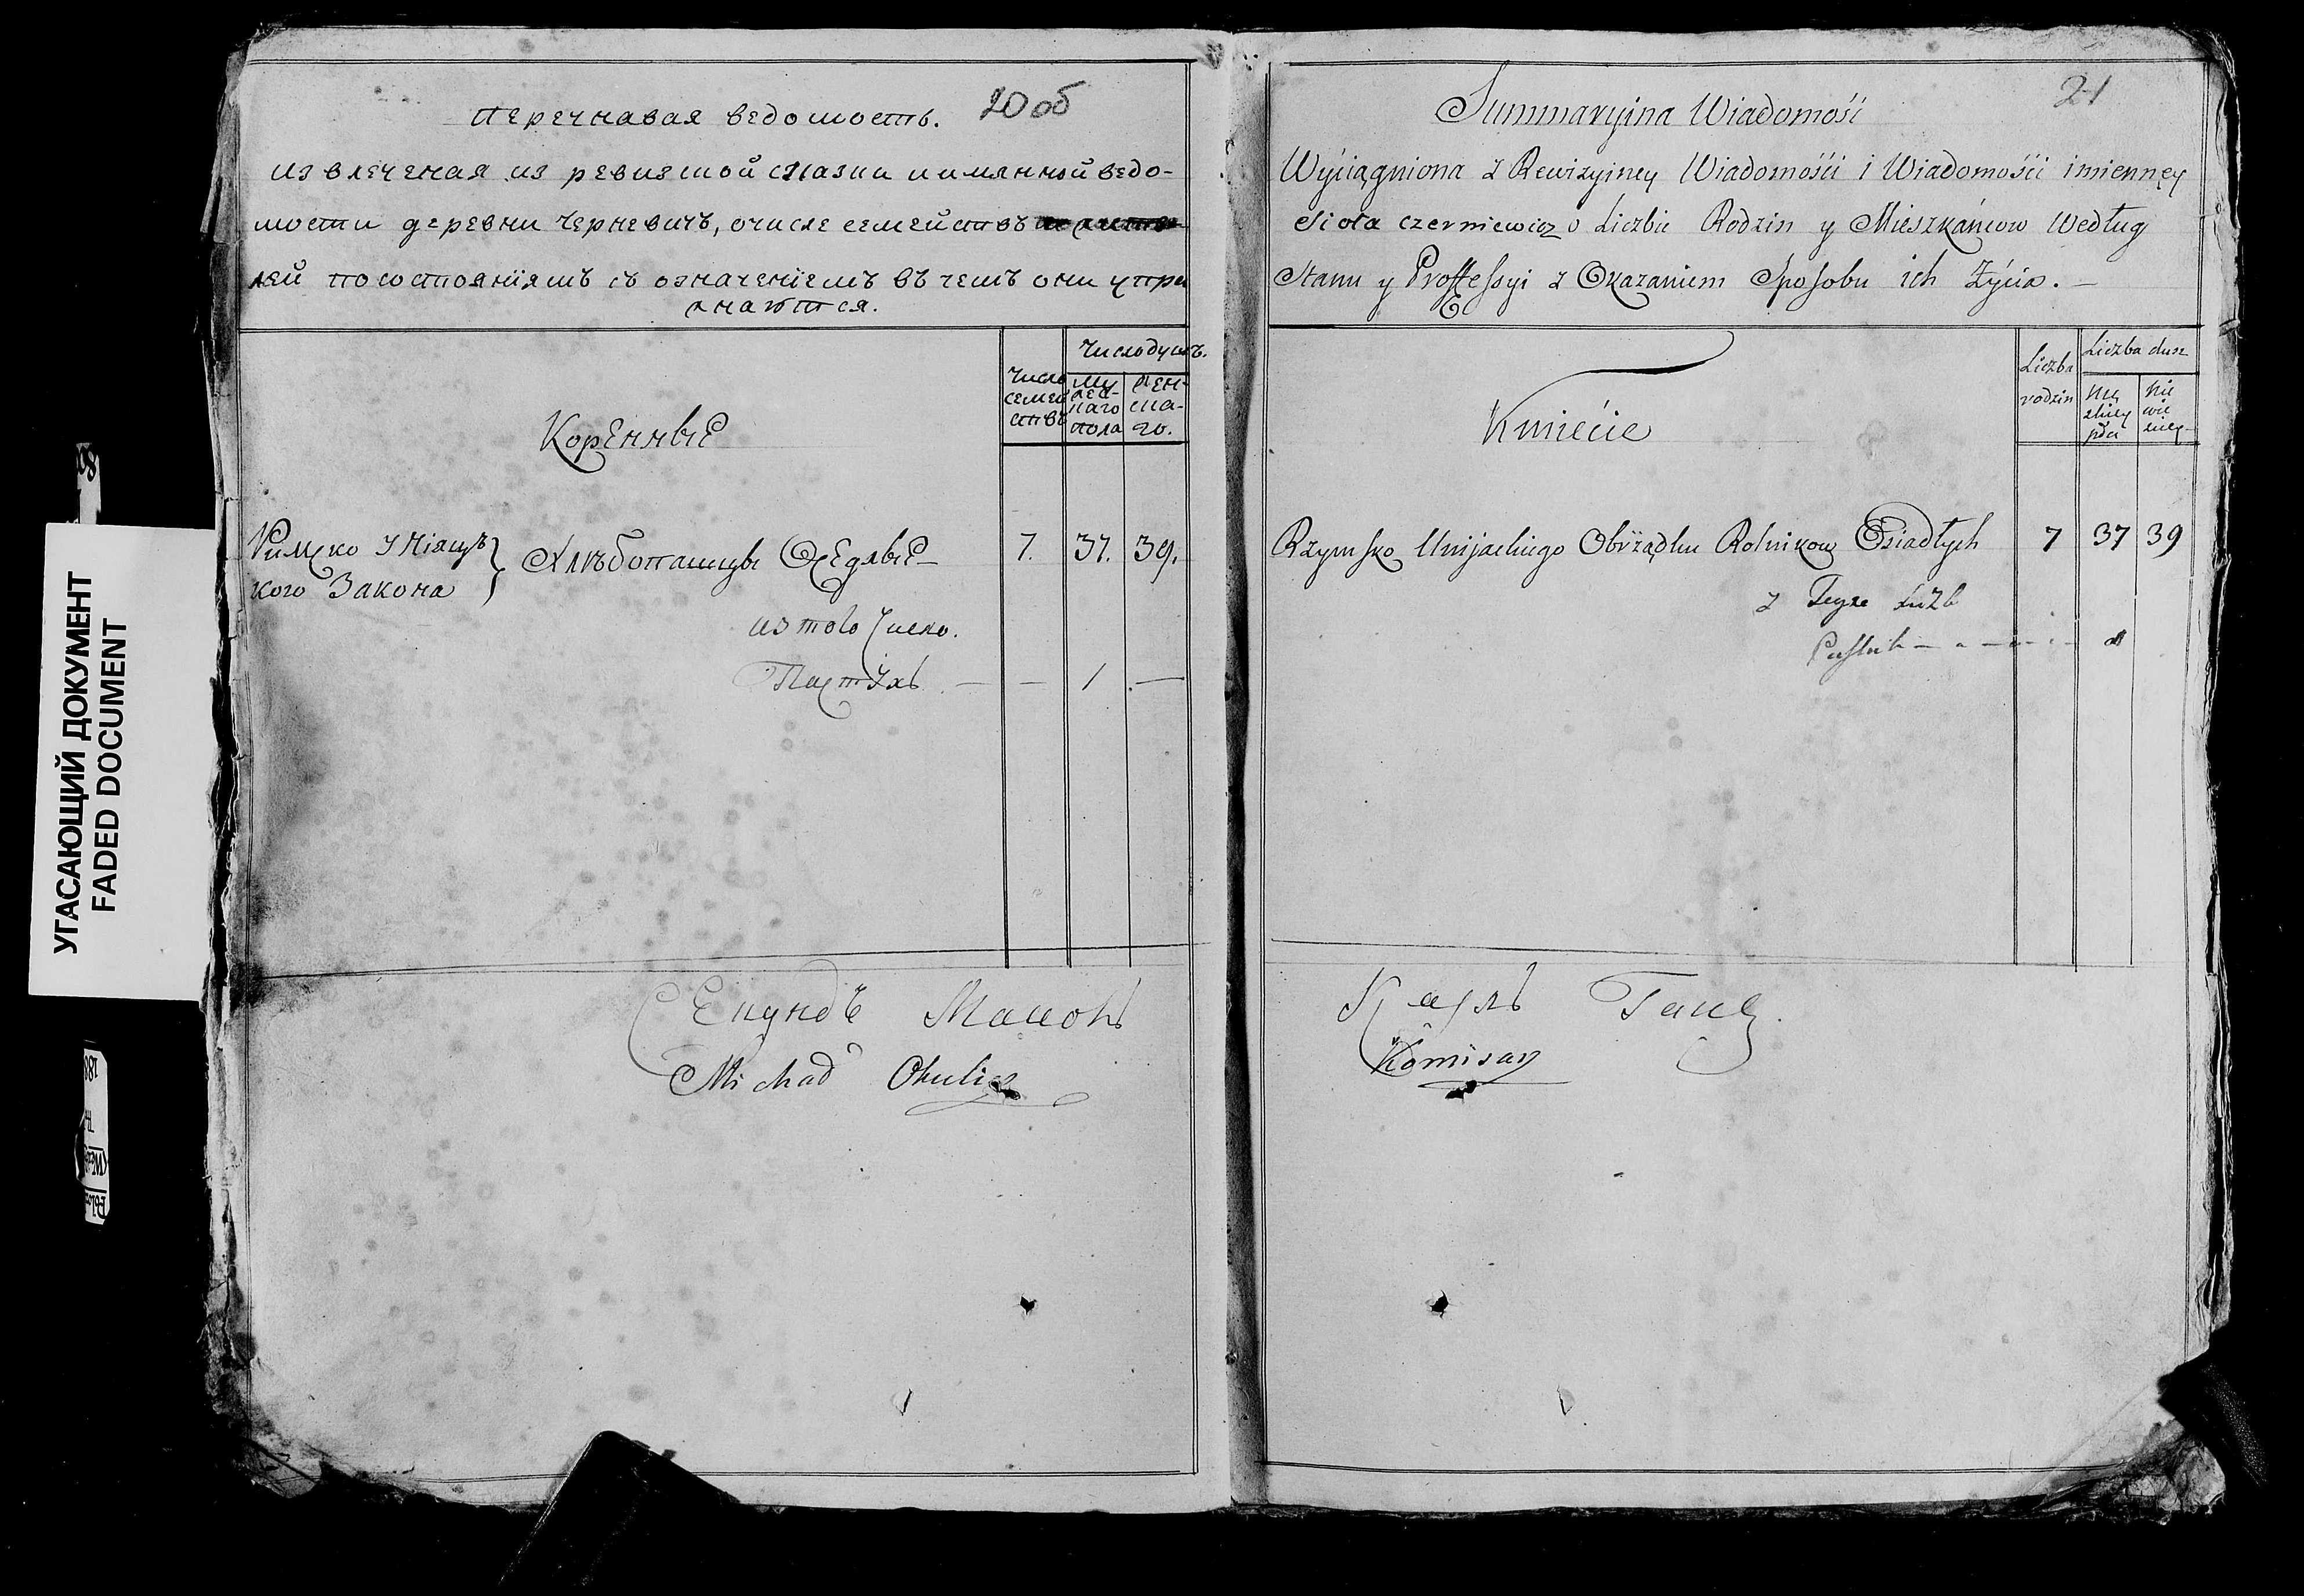 УГАСАЮЩИЙ ДОКУМЕНТ
FADED DOCUMENT
20 об
Перечнавая ведомость.
извлеченая из ревизской сказки и имянной ведо-
мости деревни Черневичъ, очисле семействъ
лей посостояніямъ съ означеніемъ въ чемъ они упра
жнаются.
Коренные
Число
семей
ствъ
Число душъ.
му
жес-
каго
пола
жен-
ска-
го.
Римско Уніяцъ
кого Закона } Хлѣбопашцы Оседлые 7. 37. 39.
из того Число.
Пастухъ — — 1 —
Секундъ
Michał Okulicz
21
Summaryina Wiadomość
Wyciągniona z Rewizyiney Wiadomości i Wiadomości imienney
Sioła Czerniewicz o Liczbie Rodzin y Mieszkańcow Według
Stanu y Proffessyi z Okazaniem Sposobu ich Życia. —
Kmiecie
Liczba
rodzin
Liczba dusz
mę
zkiey
płci
nie
wie
sciey
Rzymsko Unijackiego Obrządku Rolnikow Osiadłych 7 37 39
z Teyze Liczb
Pastuch
Карлъ Ганц
Komisarz